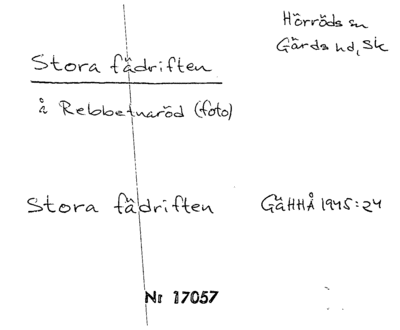 Hörröds sn
Gärds hd, Sk
Stora fädriften
å Rebbetuaröd (foto)
Stora fädriften GÄHHÅ 1945:24
Nr 17057